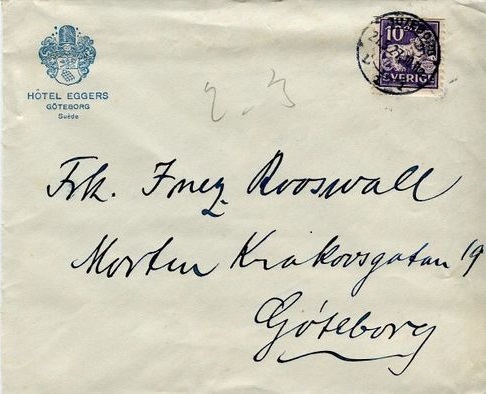 HÔTEL EGGERS
GÖTEBORG
Suède
10
SVERIGE
2 3
Frk. Inez Rooswall
Morten Krakowsgatan 19
Göteborg